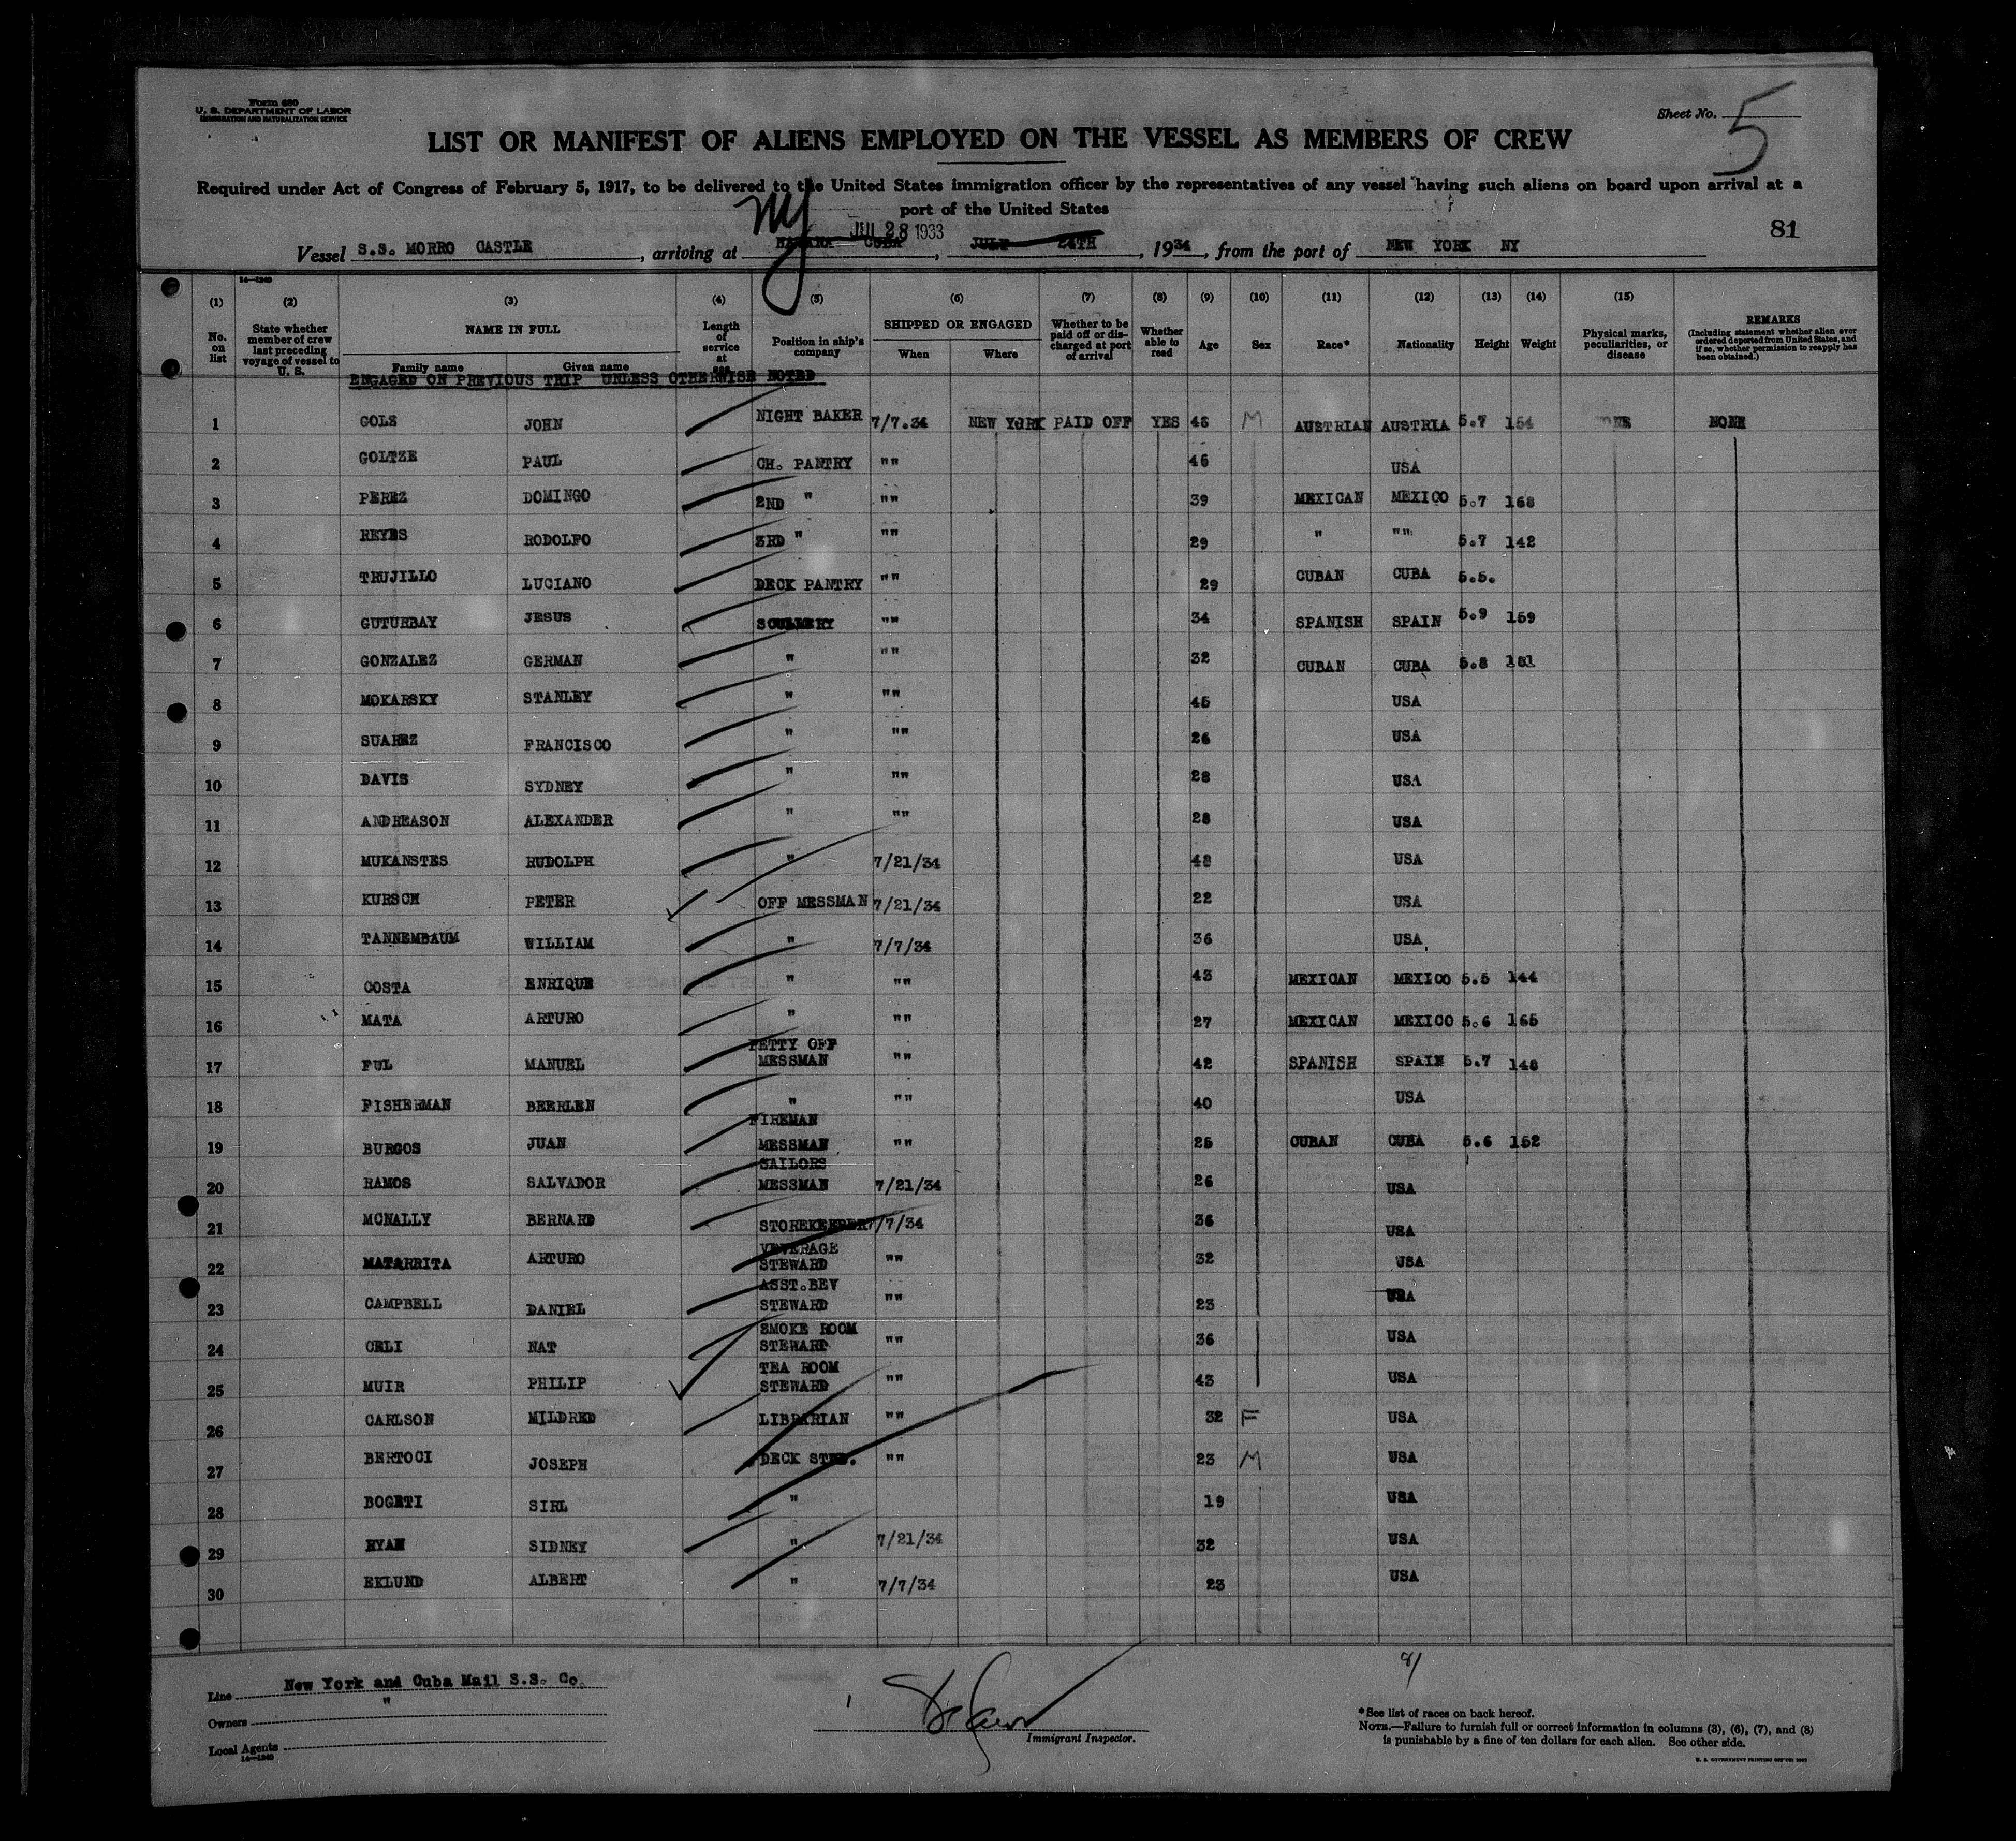 Form 680
U. S. DEPARTMENT OF LABOR
IMMIGRATION AND NATURALIZATION SERVICE
Sheet No. 5
LIST OR MANIFEST OF ALIENS EMPLOYED ON THE VESSEL AS MEMBERS OF CREW
Required under Act of Congress of February 5, 1917, to be delivered to the United States immigration officer by the representatives of any vessel having such aliens on board upon arrival at a
port of the United States
NY JUL 28 1933 81
Vessel S.S. MORRO CASTLE, arriving at HAVANA CUBA, JULY 24TH, 1934, from the port of NEW YORK NY
14—1240
(1) (2) (3) (4) (5) (6) (7) (8) (9) (10) (11) (12) (13) (14) (15)
No. on list State whether member of crew last preceding voyage of vessel to U. S. NAME IN FULL Family name Given name Length of service at Position in ship's company SHIPPED OR ENGAGED When Where Whether to be paid off or discharged at port of arrival Whether able to read Age Sex Race* Nationality Height Weight Physical marks, peculiarities, or disease REMARKS (Including statement whether alien ever ordered deported from United States, and if so, whether permission to reapply has been obtained.)
ENGAGED ON PREVIOUS TRIP UNLESS OTHERWISE NOTED
1 GOLS JOHN NIGHT BAKER 7/7.34 NEW YORK PAID OFF YES 48 M AUSTRIAN AUSTRIA 5.7 154 NONE NONE
2 GOLTZE PAUL CH. PANTRY "" 46 USA
3 PEREZ DOMINGO 2ND " "" 39 MEXICAN MEXICO 5.7 168
4 REYES RODOLFO 3RD " "" 29 " "" 5.7 142
5 TRUJILLO LUCIANO DECK PANTRY "" 29 CUBAN CUBA 5.5.
6 GUTURBAY JESUS SCULLERY "" 34 SPANISH SPAIN 5.9 159
7 GONZALEZ GERMAN " "" 32 CUBAN CUBA 5.8 181
8 MOKARSKY STANLEY " "" 45 USA
9 SUAREZ FRANCISCO " "" 26 USA
10 DAVIS SYDNEY " "" 28 USA
11 ANDREASON ALEXANDER " "" 28 USA
12 MUKANSTES RUDOLPH " 7/21/34 48 USA
13 KURSCH PETER OFF MESSMAN 7/21/34 22 USA
14 TANNEMBAUM WILLIAM " 7/7/34 36 USA
15 COSTA ENRIQUE " "" 43 MEXICAN MEXICO 5.5 144
16 MATA ARTURO " "" 27 MEXICAN MEXICO 5.6 165
17 FUL MANUEL PETTY OFF MESSMAN "" 42 SPANISH SPAIN 5.7 148
18 FISHERMAN BEERLEN " "" 40 USA
19 BURGOS JUAN FIREMAN MESSMAN "" 25 CUBAN CUBA 5.6 152
20 RAMOS SALVADOR SAILORS MESSMAN 7/21/34 26 USA
21 MCNALLY BERNARD STOREKEEPER 7/7/34 36 USA
22 MATARRITA ARTURO VEVERAGE STEWARD "" 32 USA
23 CAMPBELL DANIEL ASST.BEV STEWARD "" 23 USA
24 CELI NAT SMOKE ROOM STEWARD "" 36 USA
25 MUIR PHILIP TEA ROOM STEWARD "" 43 USA
26 CARLSON MILDRED LIBRARIAN "" 32 F USA
27 BERTOCI JOSEPH DECK STWD. "" 23 M USA
28 BOGETI SIRL " 19 USA
29 RYAN SIDNEY " 7/21/34 32 USA
30 EKLUND ALBERT " 7/7/34 23 USA
81
Line New York and Cuba Mail S.S. Co.
Owners "
Local Agents
14—1240
Immigrant Inspector.
*See list of races on back hereof.
NOTE.—Failure to furnish full or correct information in columns (3), (6), (7), and (8)
is punishable by a fine of ten dollars for each alien. See other side.